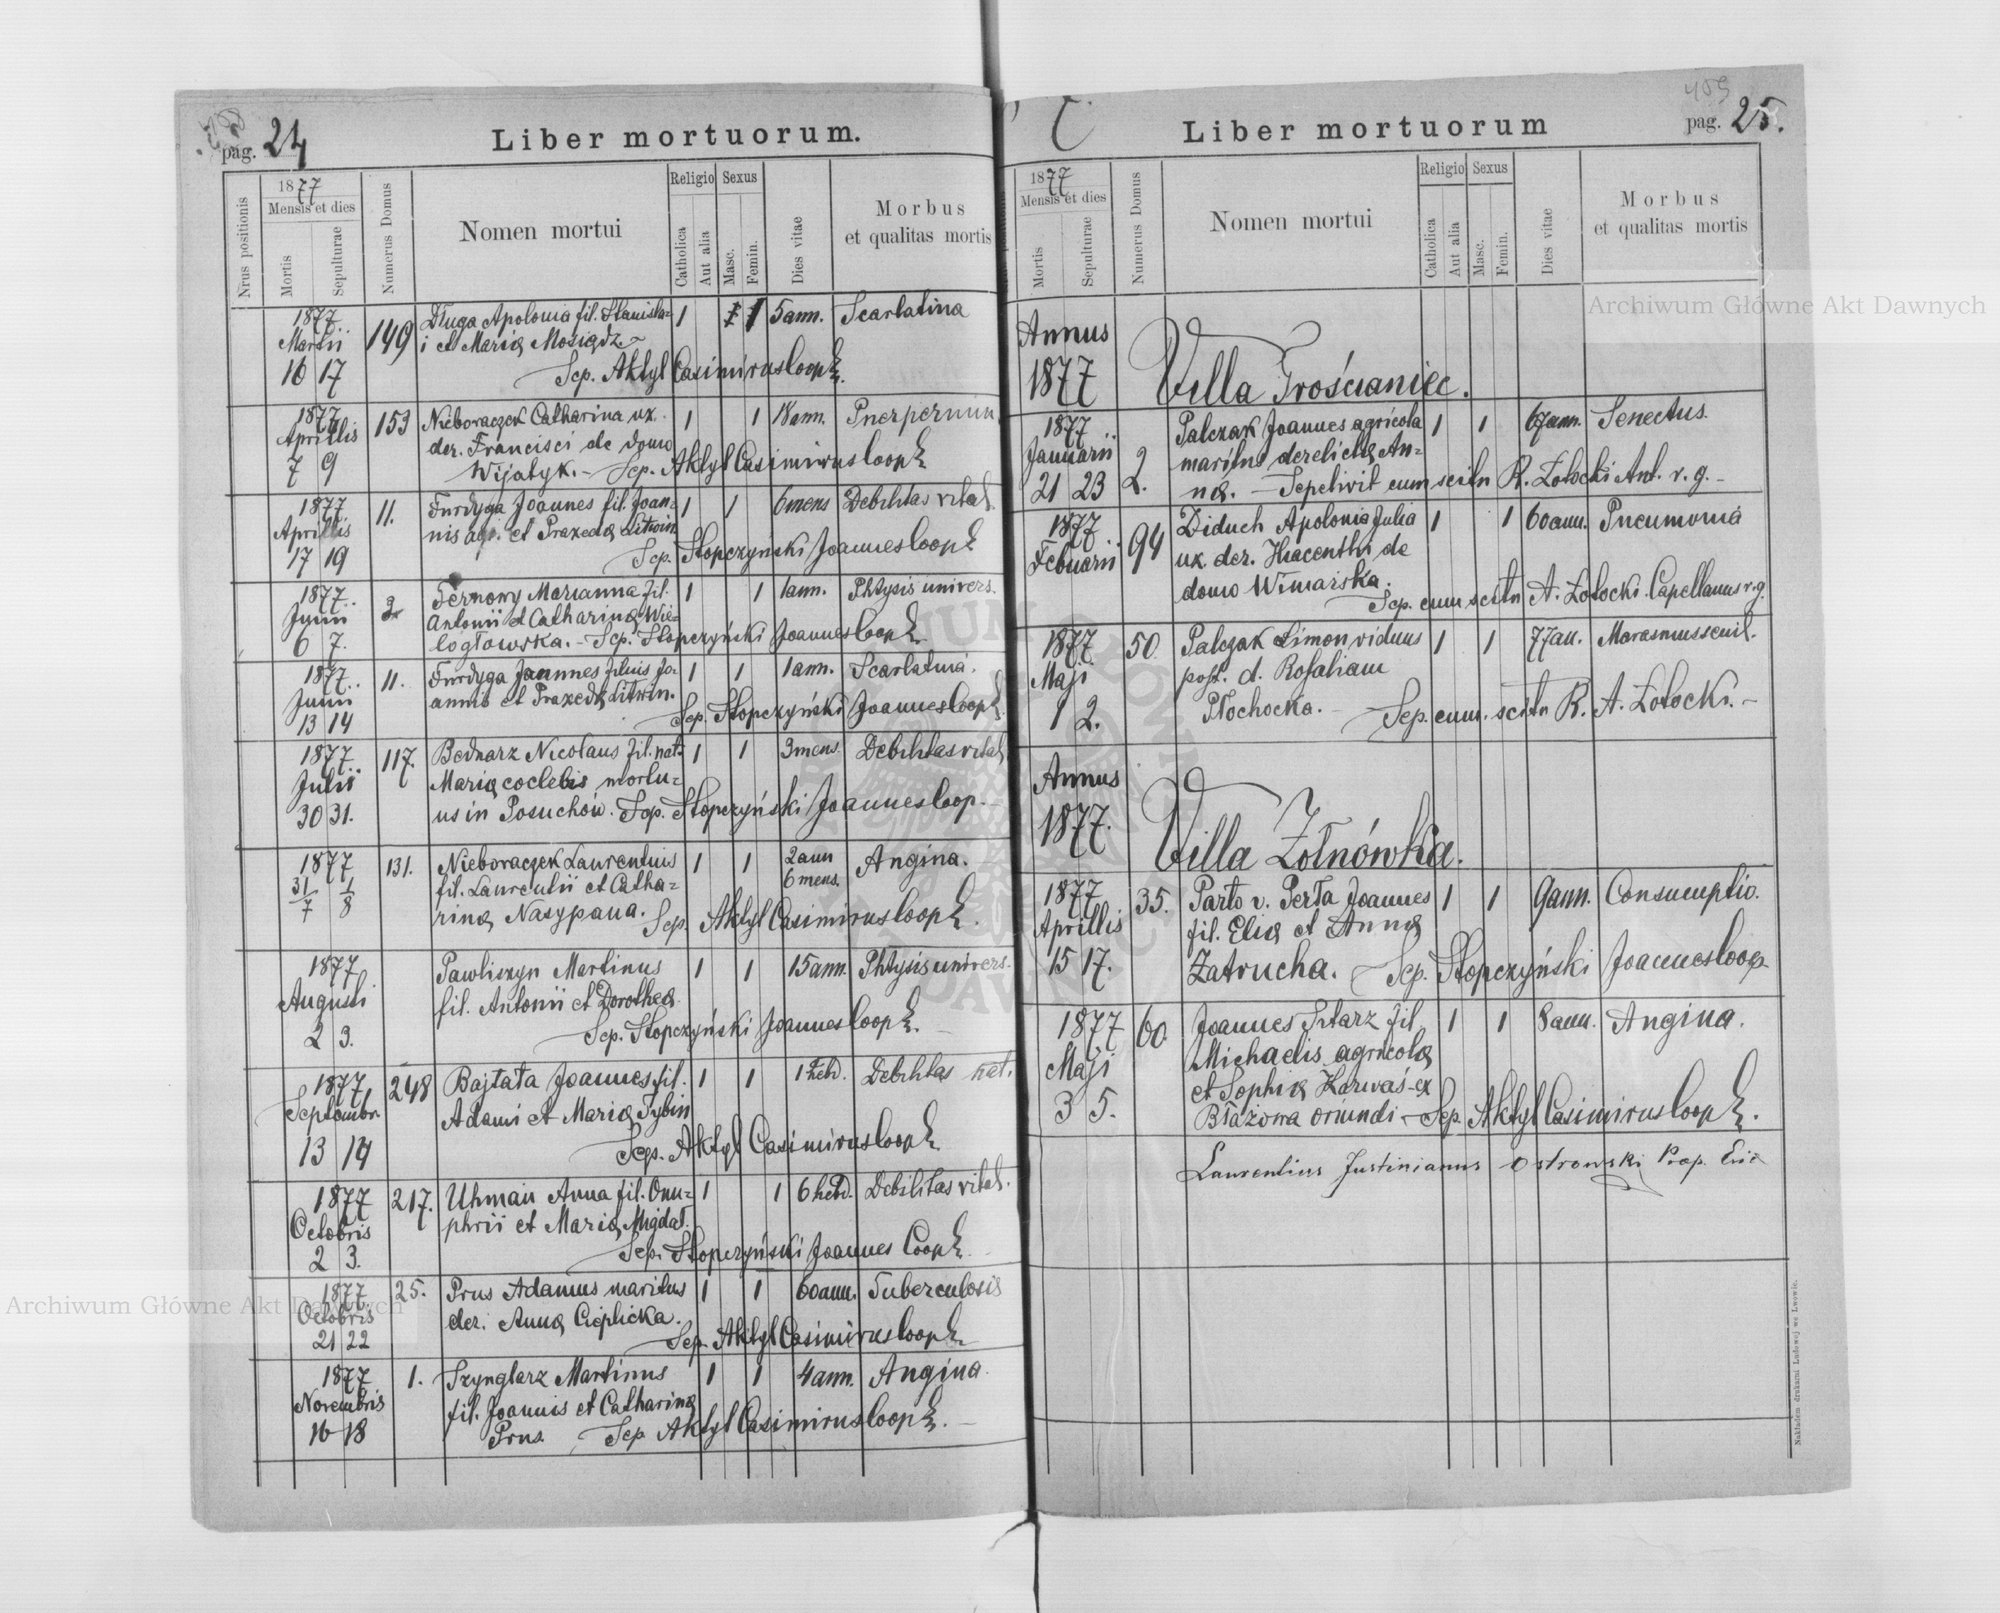 pag. 24
Liber mortuorum.
Nrus positionis
1877
Mensis et dies
Mortis
Sepulturae
Numerus Domus
Nomen mortui
Religio
Catholica
Aut alia
Sexus
Masc.
Femin.
Dies vitae
Morbus
et qualitas mortis
1877 Martii 16 17
149
Długa Apolonia fil. Stanisla-
i et Mariæ Mosiądz
1 1 5 ann. Scarlatina
Sep. Aktyl Casimirus Coop
1877 Aprilis 7 9
153
Nieboraczek Catharina ux.
der. Francisci de domo
Wijatyk. - Sep. Aktyl Casimirus Coop
1 1 18 ann.
1877 Aprilis 17 19
11.
Furdyga Joannes fil. Joan-
nis agr. et Praxedæ Litwin
1 1 6 mens Debilitas vital.
Sep. Stopczyński Joannes Coop
1877 Junii 6 7.
Fernowy Marianna fil.
Antonii et Catharinæ Wie-
logłowska. - Sep. Stopczyński Joannes Coop
1 1 1 ann. Phtysis univers.
1877 Junii 13 14
11.
Furdyga Joannes filius Jo-
annis et Praxedæ Litwin.
1 1 1 ann. Scarlatina.
Sep. Stopczyński Joannes Coop
1877 Julii 30 31.
117.
Bednarz Nicolaus fil. nat.
Mariæ coelebis mortu-
us in Posuchów. Sep. Stopczyński Joannes Coop.
1 1 3 mens. Debilitas vital
1877 31/7 1/8
131.
Nieboraczek Laurentius
fil. Laurentii et Catha-
rinæ Nasypana. Sep. Aktyl Casimirus Coop
1 1 2 ann 6 mens. Angina.
1877 Augusti 2 3.
Pawliszyn Martinus
fil. Antonii et Dorotheæ
1 1 15 ann. Phtysis univers.
Sep. Stopczyński Joannes Coop
1877 Septembr. 13 14
248
Bajtała Joannes fil.
Adami et Mariæ Sybin
1 1 1 hebd. Debilitas nat.
Sep. Aktyl Casimirus Coop
1877 Octobris 2 3.
217.
Uhman Anna fil. Onu-
phrii et Mariæ Migdał.
1 1 6 hebd. Debilitas vital.
Sep. Stopczyński Joannes Coop
1877 Octobris 21 22
25.
Prus Adamus maritus
der. Annæ Cieplicka.
1 1 60 ann. Tuberculosis
Sep. Aktyl Casimirus Coop
1877 Novembris 16 18
1.
Szynglarz Martinus
fil. Joannis et Catharinæ
Prus. Sep. Aktyl Casimirus Coop
1 1 4 ann. Angina.
459
pag. 25.
Liber mortuorum
1877
Mensis et dies
Mortis
Sepulturae
Numerus Domus
Nomen mortui
Religio
Catholica
Aut alia
Sexus
Masc.
Femin.
Dies vitae
Morbus
et qualitas mortis
Annus
1877
Villa Trościaniec.
1877 Januarii 21 23
2.
Palczak Joannes agricola
maritus derelictæ An-
næ. - Sepelivit cum scitu R. Zołocki Ant. r. g. -
1 1 67 ann. Senectus.
1877 Februarii
94
Diduch Apolonia Julia
ux der. Hiacenthi de
domo Winiarska.
1 1 60 ann. Pneumonia
Sep. cum scitu A. Zołocki Capellanus r. g.
1877 Maji 1 2.
50
Palczak Simon viduus
post. d. Rosaliam
Płochocka. - Sep. cum. scitu R. A. Zołocki. -
1 1 77 an. Marasmus senil.
Annus
1877.
Villa Zołnówka.
1877 Aprillis 15 17.
35.
Parto v. Perta Joannes
fil. Eliæ et Annæ
Zatrucha. Sep. Stopczyński Joannes Coop
1 1 9 ann. Consumptio.
1877 Maji 3 5.
60
Joannes Sztarz fil
Michaelis agricolæ
et Sophiæ Karwaś ex
Błażowa oriundi - Sep. Aktyl Casimirus Coop
1 1 8 ann. Angina.
Laurentius Justinianus Ostrowski Prop.
Nakładem drukarni Ludowej we Lwowie.
Archiwum Główne Akt Dawnych
Archiwum Główne Akt Dawnych